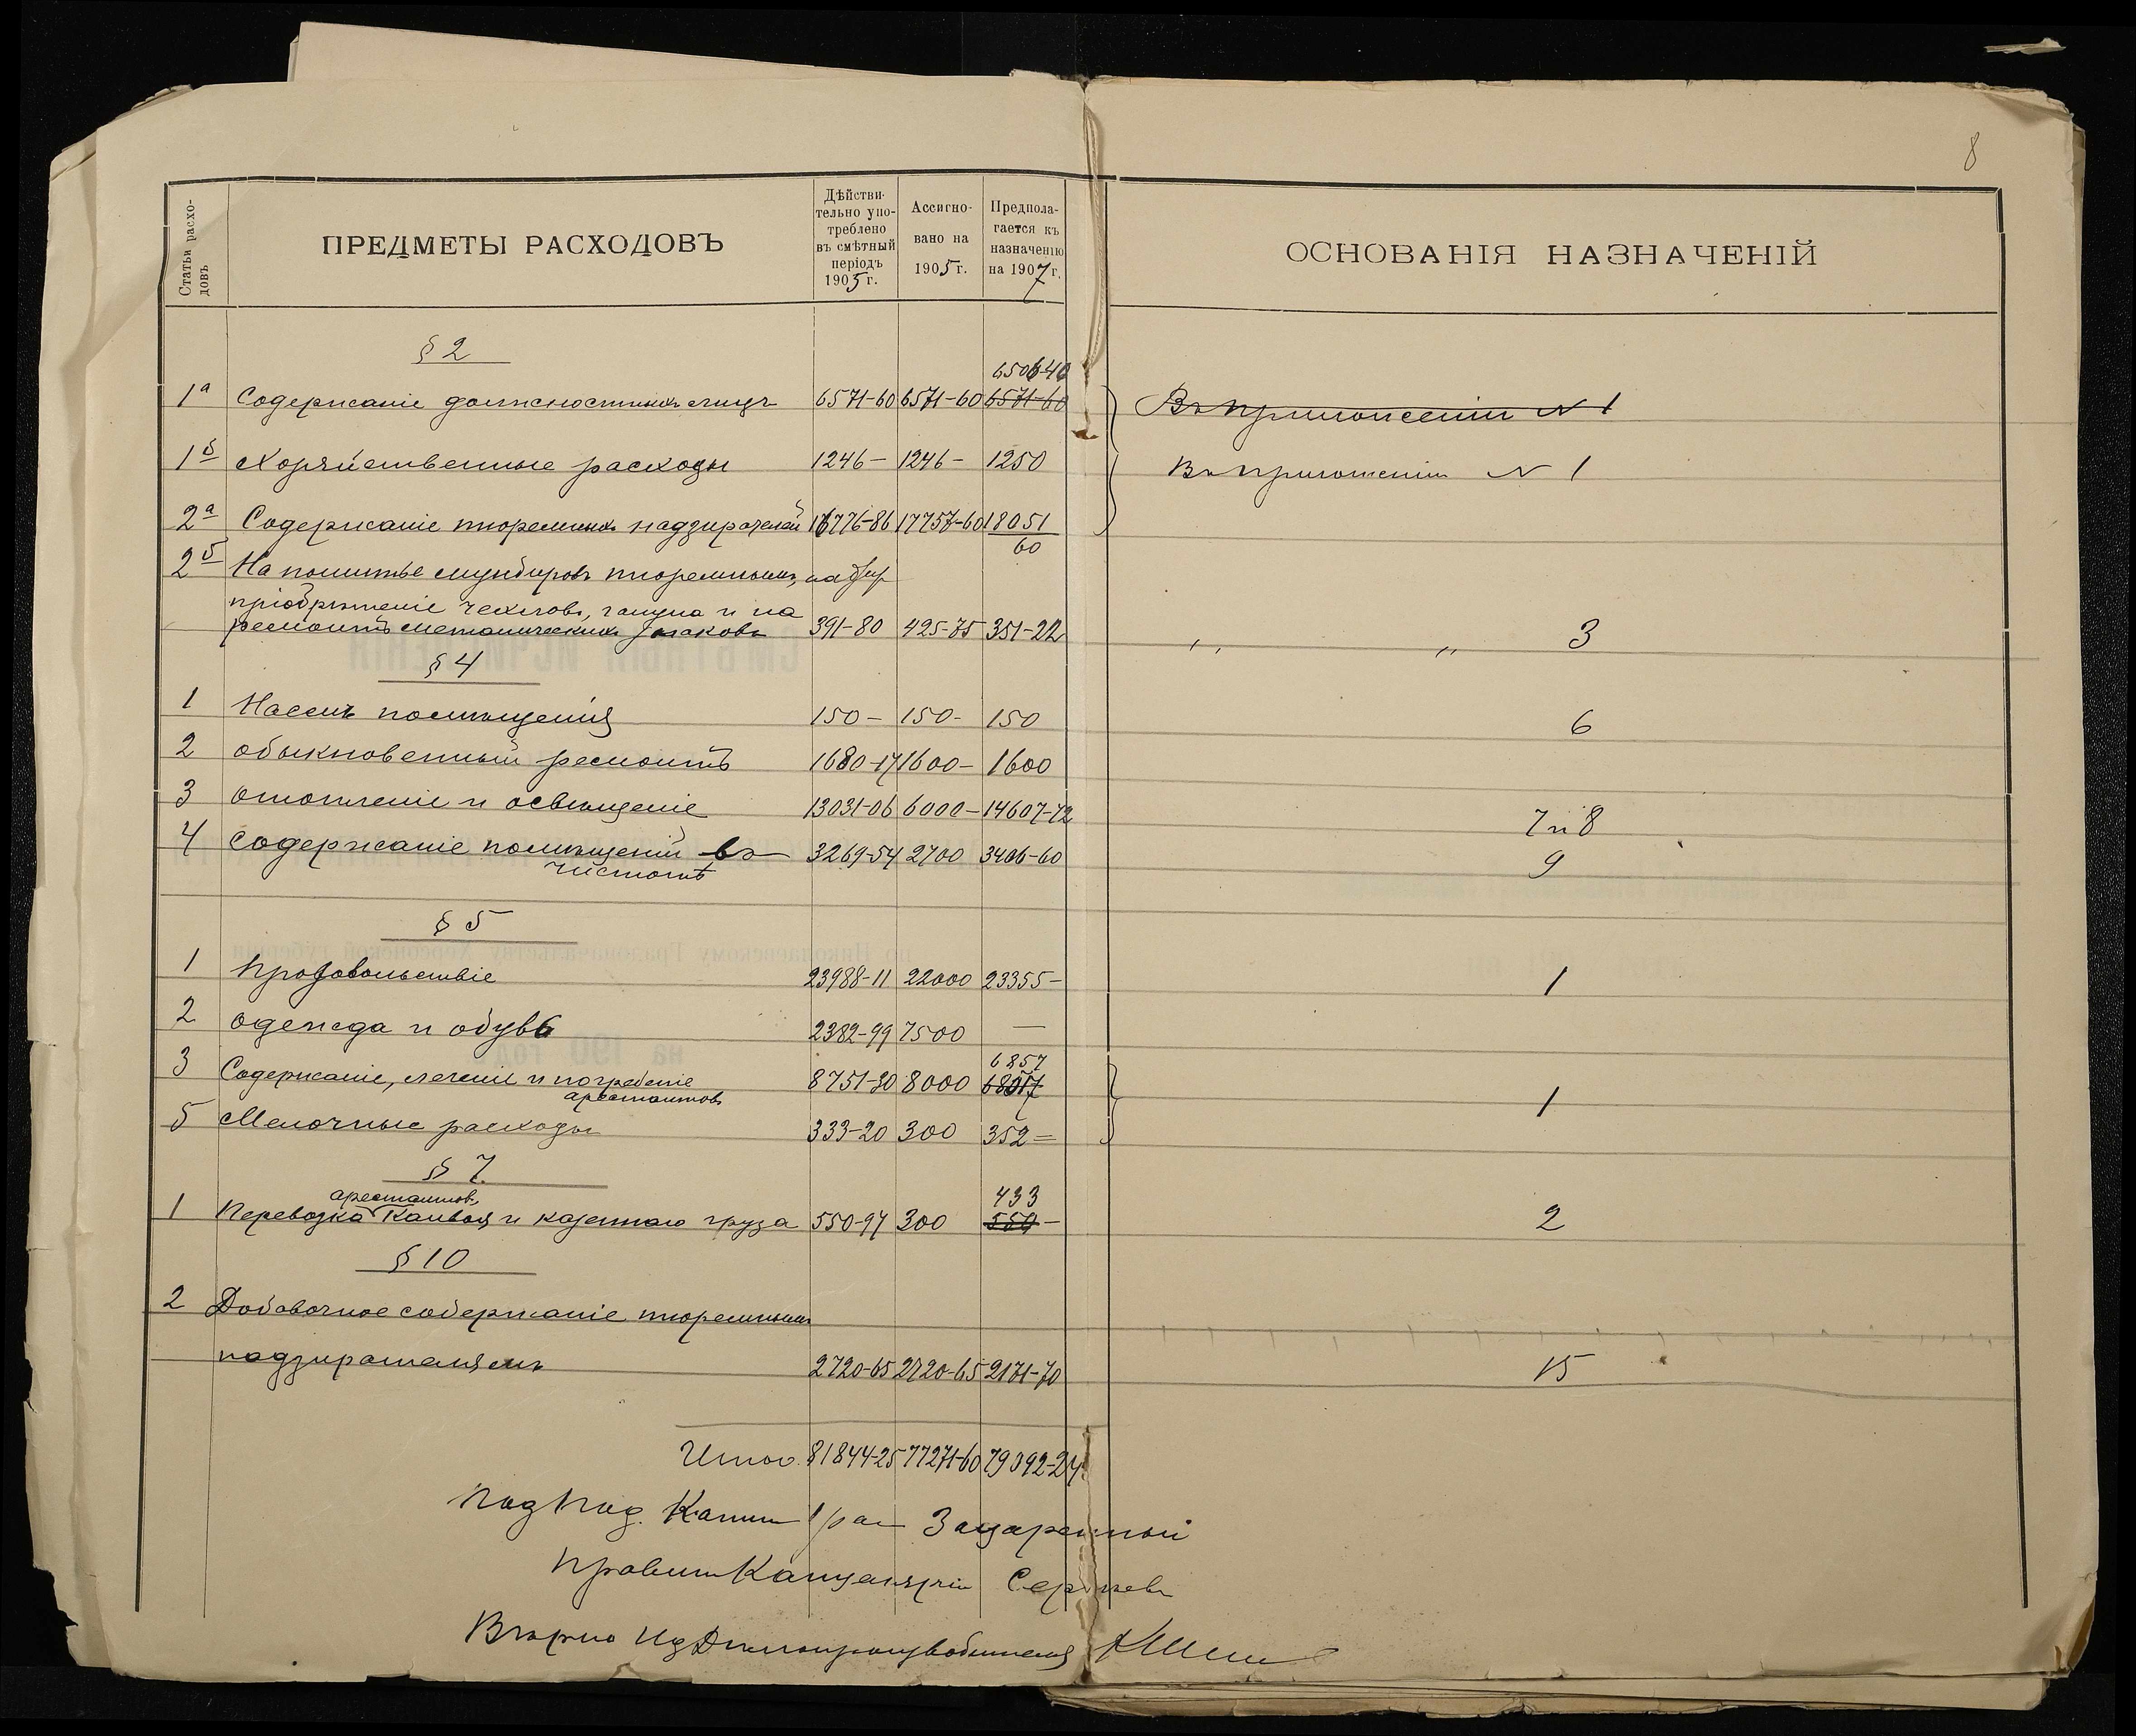 8
Статьи расхо-
довъ
ПРЕДМЕТЫ РАСХОДОВЪ
Дѣйстви-
тельно упо-
треблено
въ смѣтный
періодъ
1905 г.
Ассигно-
вано на
1905 г.
Предпола-
гается къ
назначенію
на 1907 г.
ОСНОВАНІЯ НАЗНАЧЕНІЙ
§ 2
6506-40
1а Содержаніе должностныхъ лицъ 6571-60 6571-60 6571-60 Въ приложеніи N 1
1б Хозяйственные расходы 1246- 1246- 1250 Въ приложеніи N 1
2а Содержаніе тюремныхъ надзирателей 16776-86 17757-60 18051
60
2б На пошитье мундировъ тюремнымъ надзир
пріобрѣтеніе чехловъ, галуна и на
ремонтъ металическихъ знаковъ 391-80 425-75 351-22 " " 3
§ 4
1 Наемъ помѣщенія 150- 150- 150 6
2 обыкновенный ремонтъ 1680-17 1600- 1600
3 отопленіе и освѣщеніе 13031-06 6000- 14607-72 7 и 8
4 Содержаніе помѣщеній въ 3269-54 2700 3406-60 9
чистотѣ
§ 5
1 Продовольствіе 23988-11 22000 23355- 1
2 одежда и обувь 2382-99 7500 —
6857
3 Содержаніе, леченіе и погребеніе 8751-30 8000 68017
арестантовъ 1
5 Мелочные расходы 333-20 300 352=
§ 7
арестантовъ, 433
1 Перевозка Канвоя и казеннаго груза 550-97 300 550- 2
§ 10
2 Добавочное содержаніе тюремнымъ
надзирателямъ 2720-65 2720-65 2171-70 15
Итого. 81844-25 77271-60 79392-24
Подпод. Капит 1 ранг Зацаренный
Правит Канцеляріи Сергѣевъ
Вѣрно Из Дѣлопроизводителя